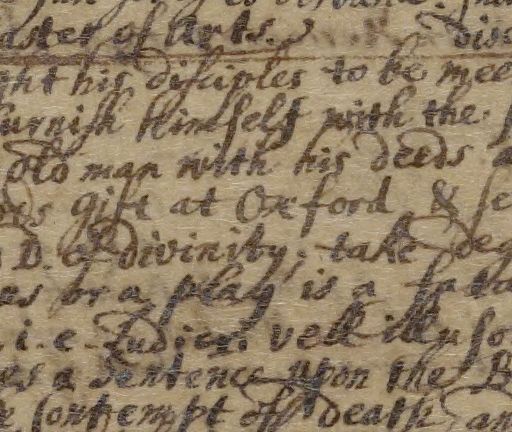 aster of Arts.
ght his disciples to be mee
furnish himself with the
old man with his deeds a
gift at Oxford & se
D. of divinity; take deg
es or a play is a
i.e. Ludicr. vell
es a sentence upon the
contempt of death an